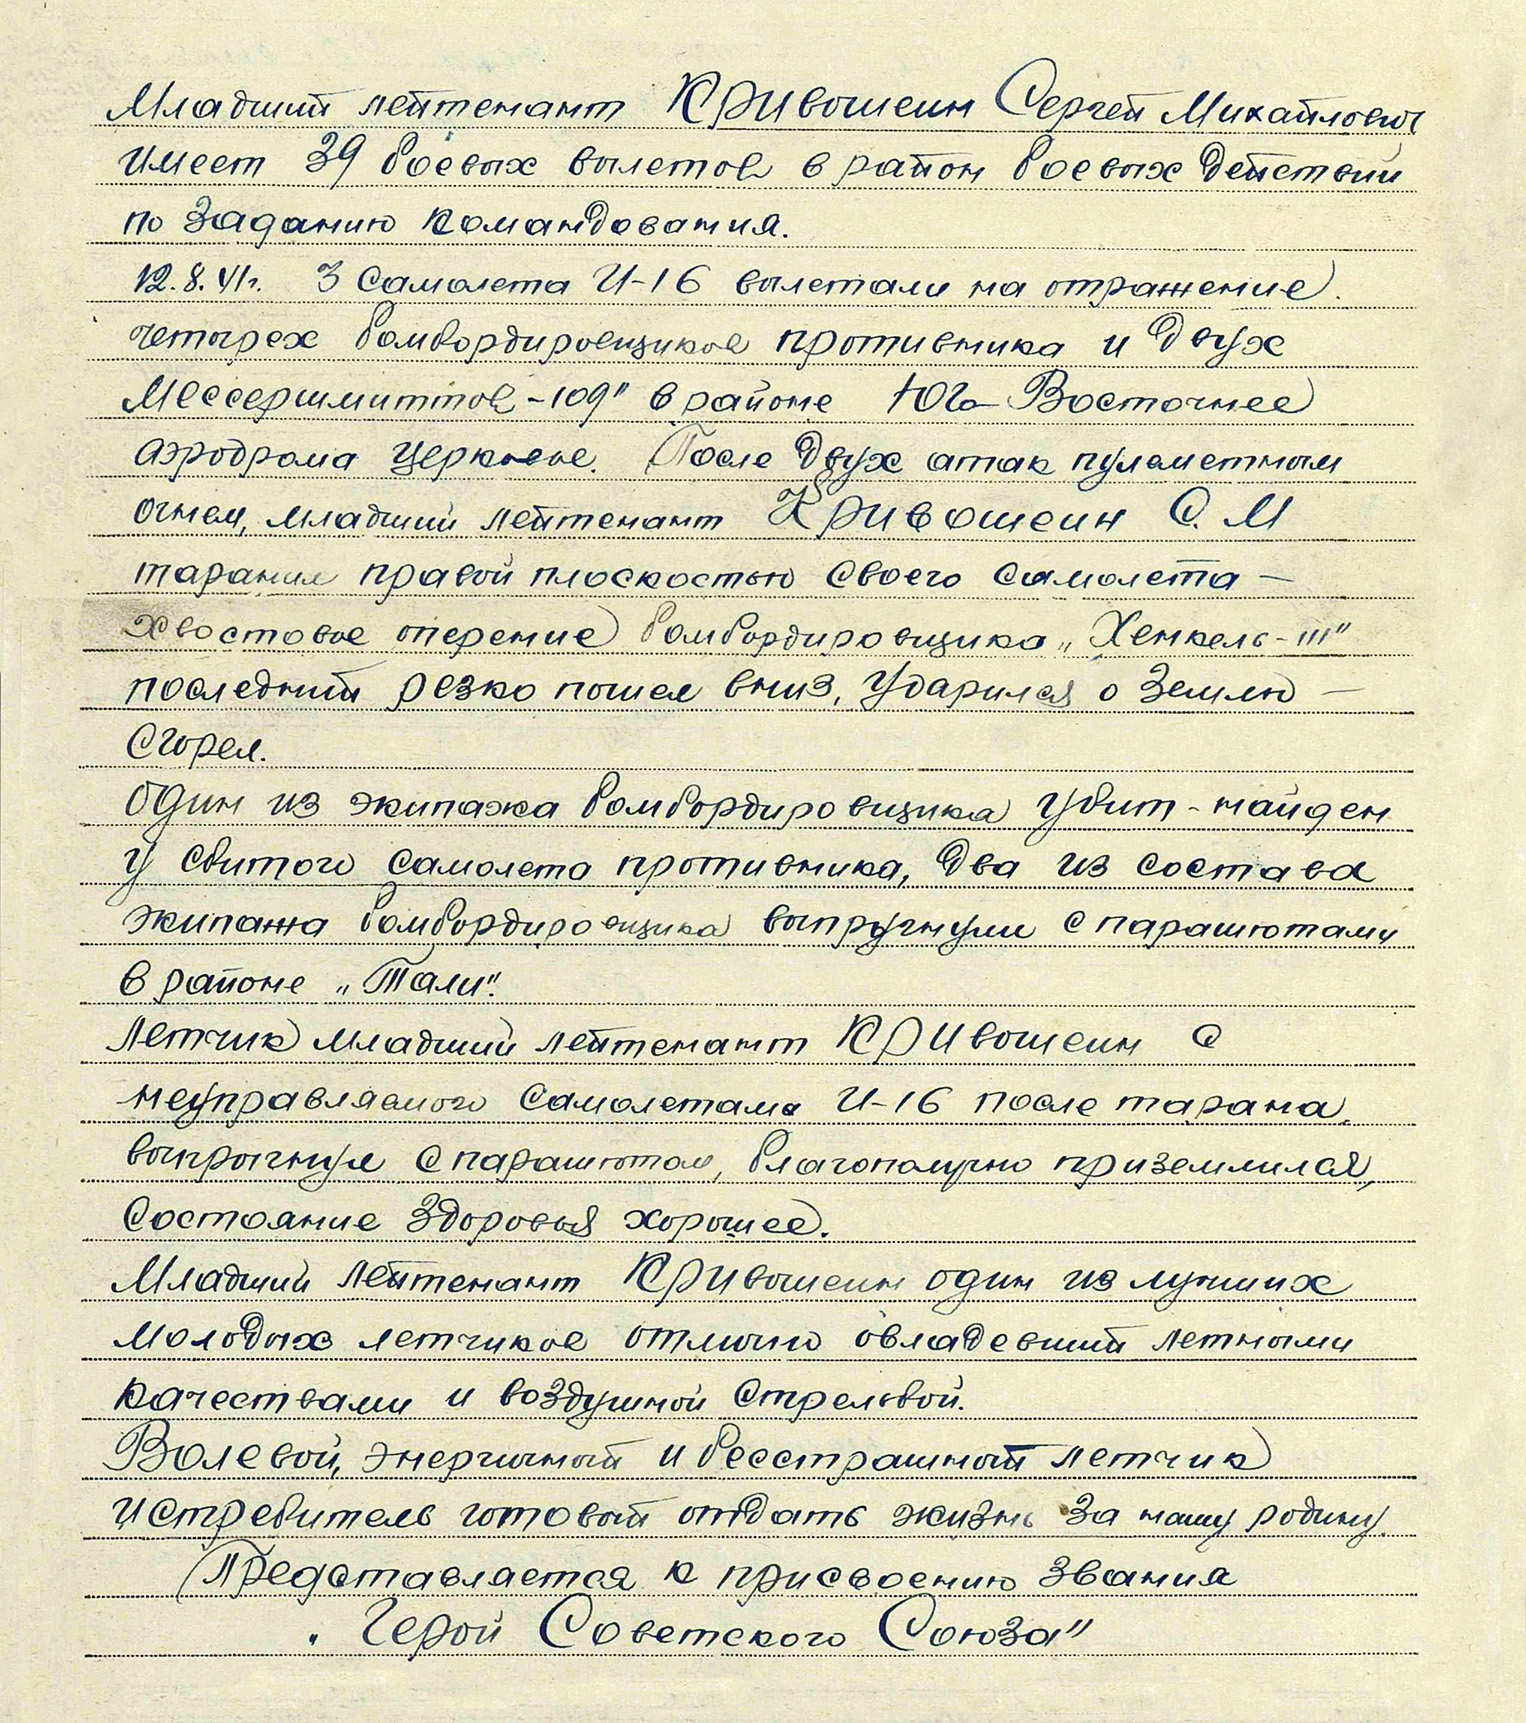 Младший лейтенант Кривошеин Сергей Михайлович
имеет 39 боевых вылетов в район боевых действий
по заданию командования.
12.8.41г. 3 самолета И-16 вылетали на отражение
четырех бомбордировщиков противника и двух
Мессершмиттов-109" в районе Юго-Восточнее
аэродрома Церковное. После двух атак пулеметным
огнем, младший лейтенант Кривошеин С. М
таранил правой плоскостью своего самолета –
хвостовое оперение бомбордировщика „Хенкель-111"
последний резко пошел вниз, ударился о землю –
сгорел.
один из экипажа бомбордировщика убит - найден
у сбитого самолета противника, два из состава
экипажа бомбордировщика выпрыгнули с парашютами
в районе „Тали".
Летчик младший лейтенант Кривошеин с
неуправляемого самолетама И-16 после тарана,
выпрыгнул с парашютом, благополучно приземлился,
состояние здоровья хорошее.
Младший лейтенант Кривошеин один из лучших
молодых летчиков отлично овладевший летными
качествами и воздушной стрельбой.
Волевой, энергичный и бесстрашный летчик
истребитель готовый отдать жизнь за нашу родину.
Представляется к присвоению звания
„Герой Советского Союза"